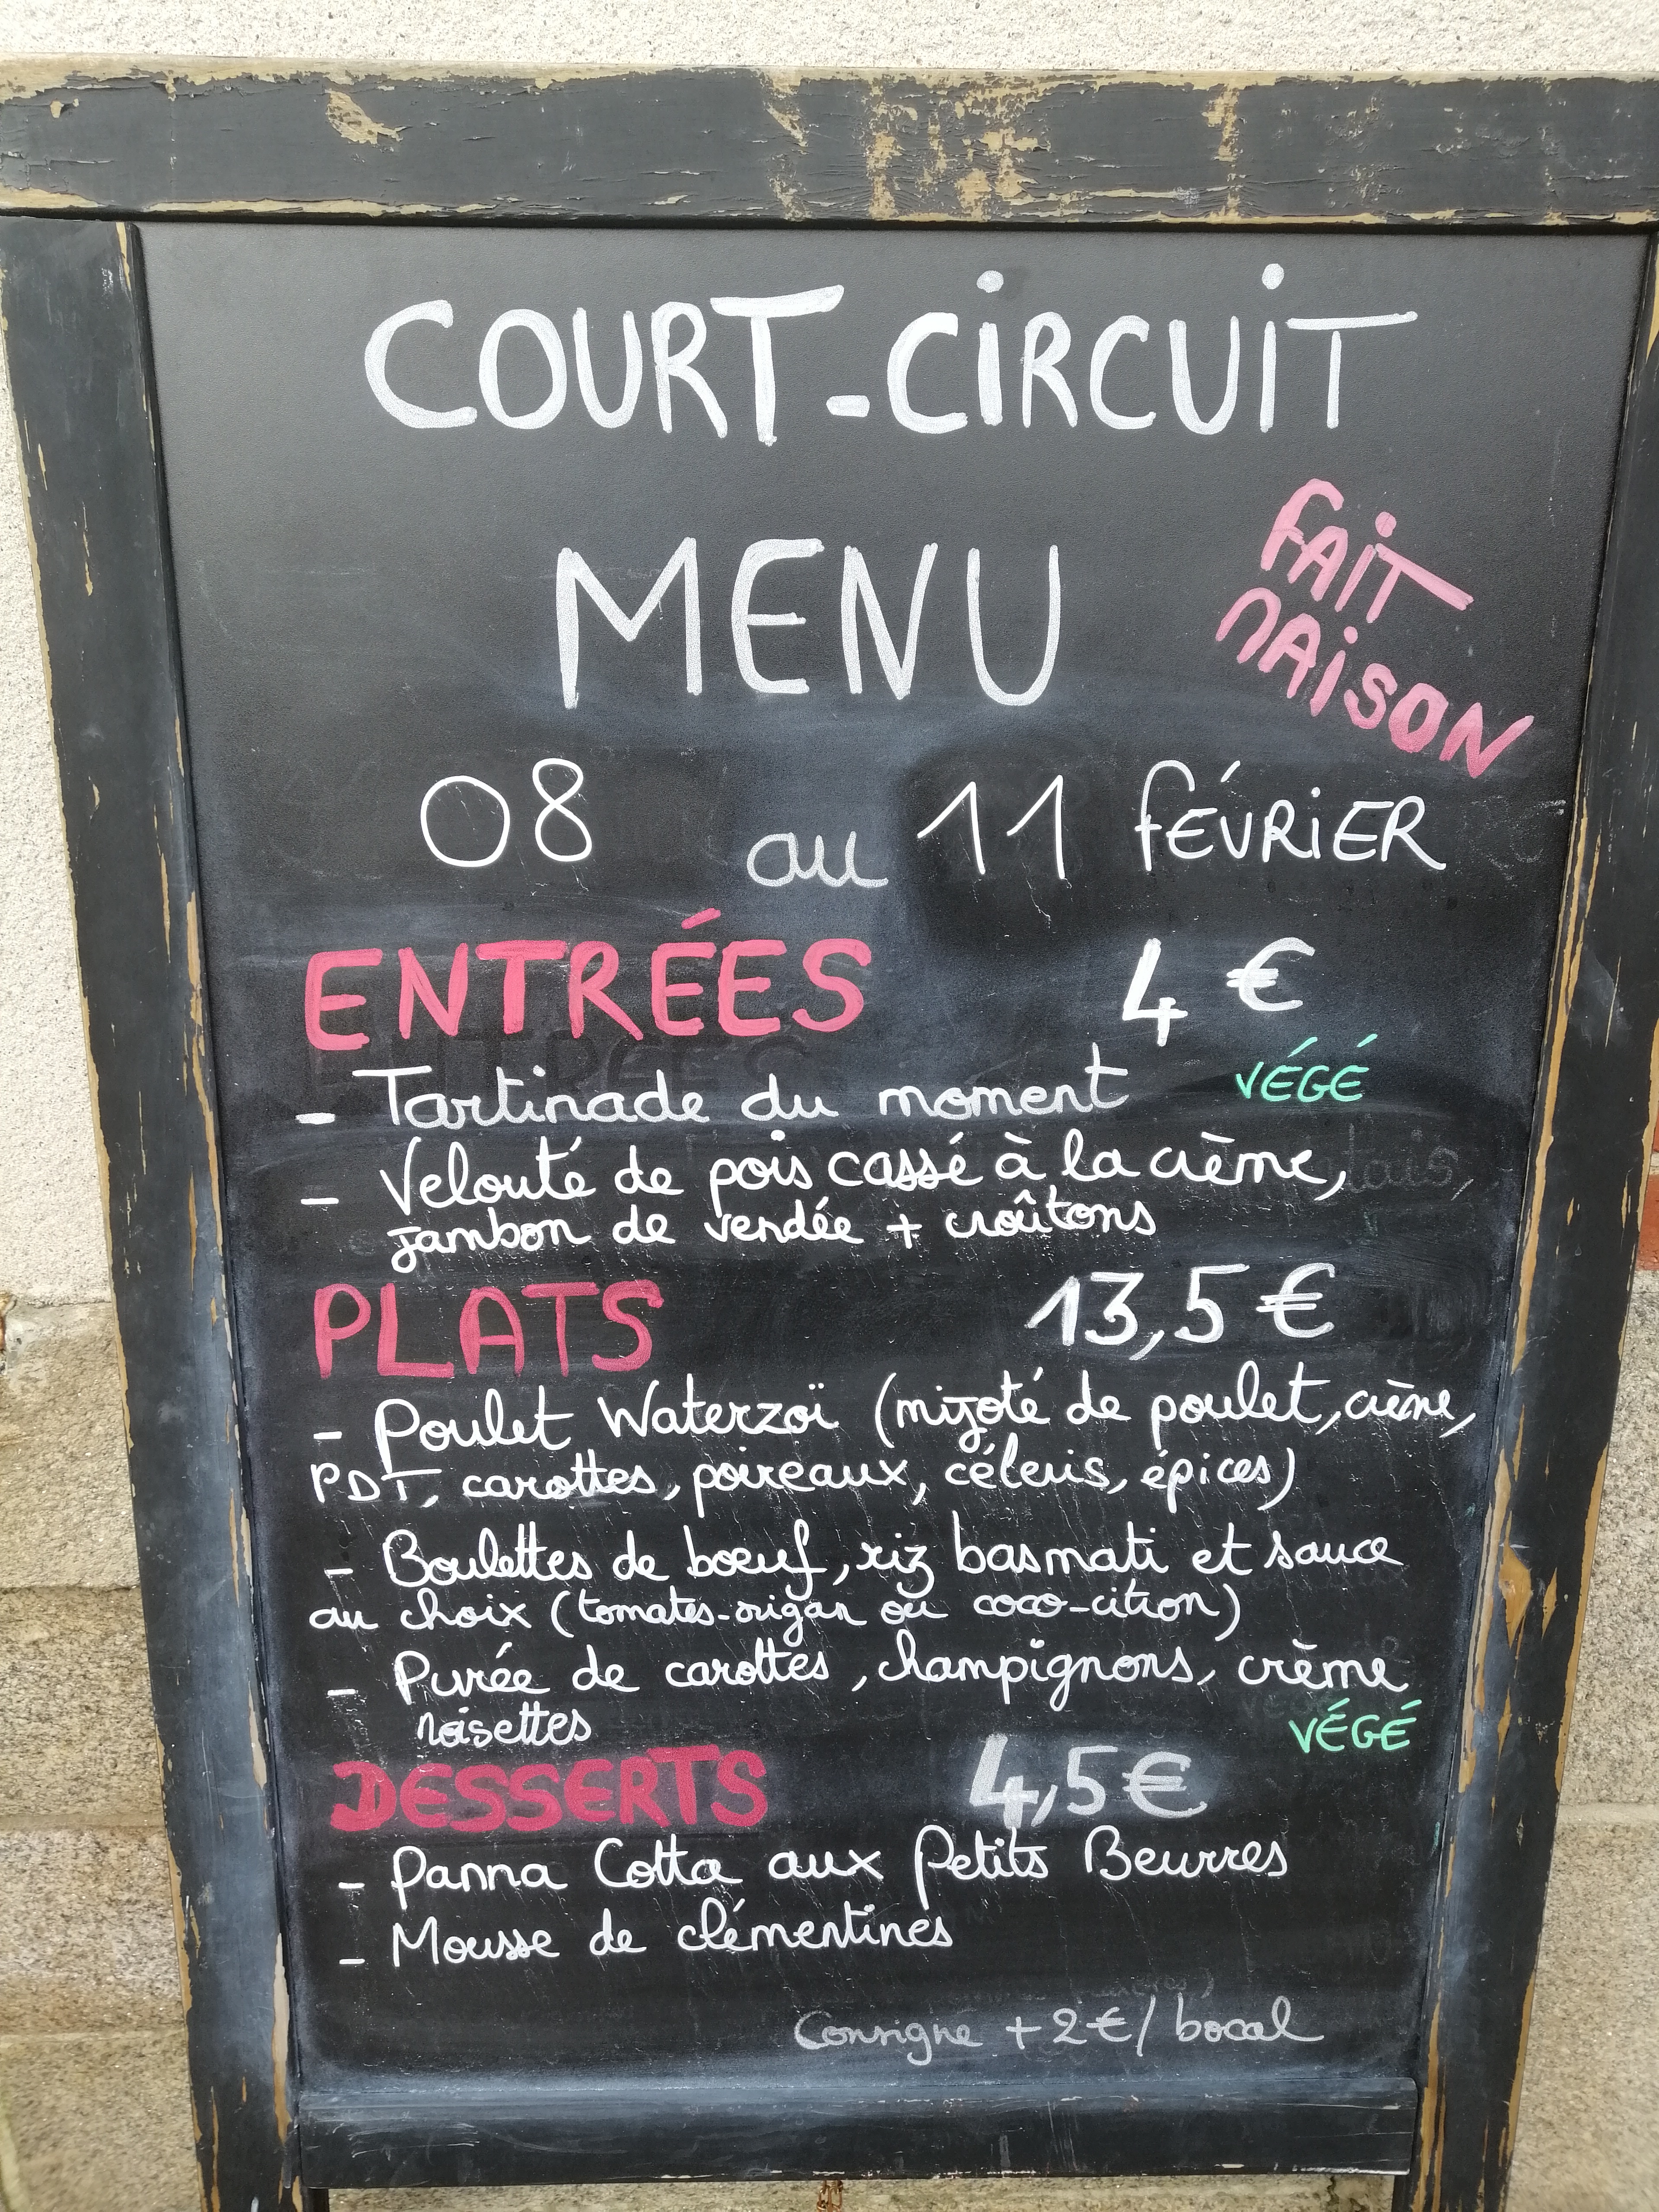 COURT-CIRCUIT
MENU
FAIT
MAISON
08 au 11 FÉVRIER
ENTRÉES 4 €
- Tartinade du moment VÉGÉ
- Velouté de pois cassé à la crème,
jambon de vendée + croûtons
PLATS 13,5 €
- Poulet Waterzoï (mijoté de poulet, crème,
PDT, carottes, poireaux, céleris, épices)
- Boulettes de bœuf, riz basmati et sauce
au choix (tomates-origan ou coco-citron)
- Purée de carottes, champignons, crème
noisettes VÉGÉ
DESSERTS 4,5€
- Panna Cotta aux Petits Beurres
- Mousse de clémentines
Consigne +2€/ bocal